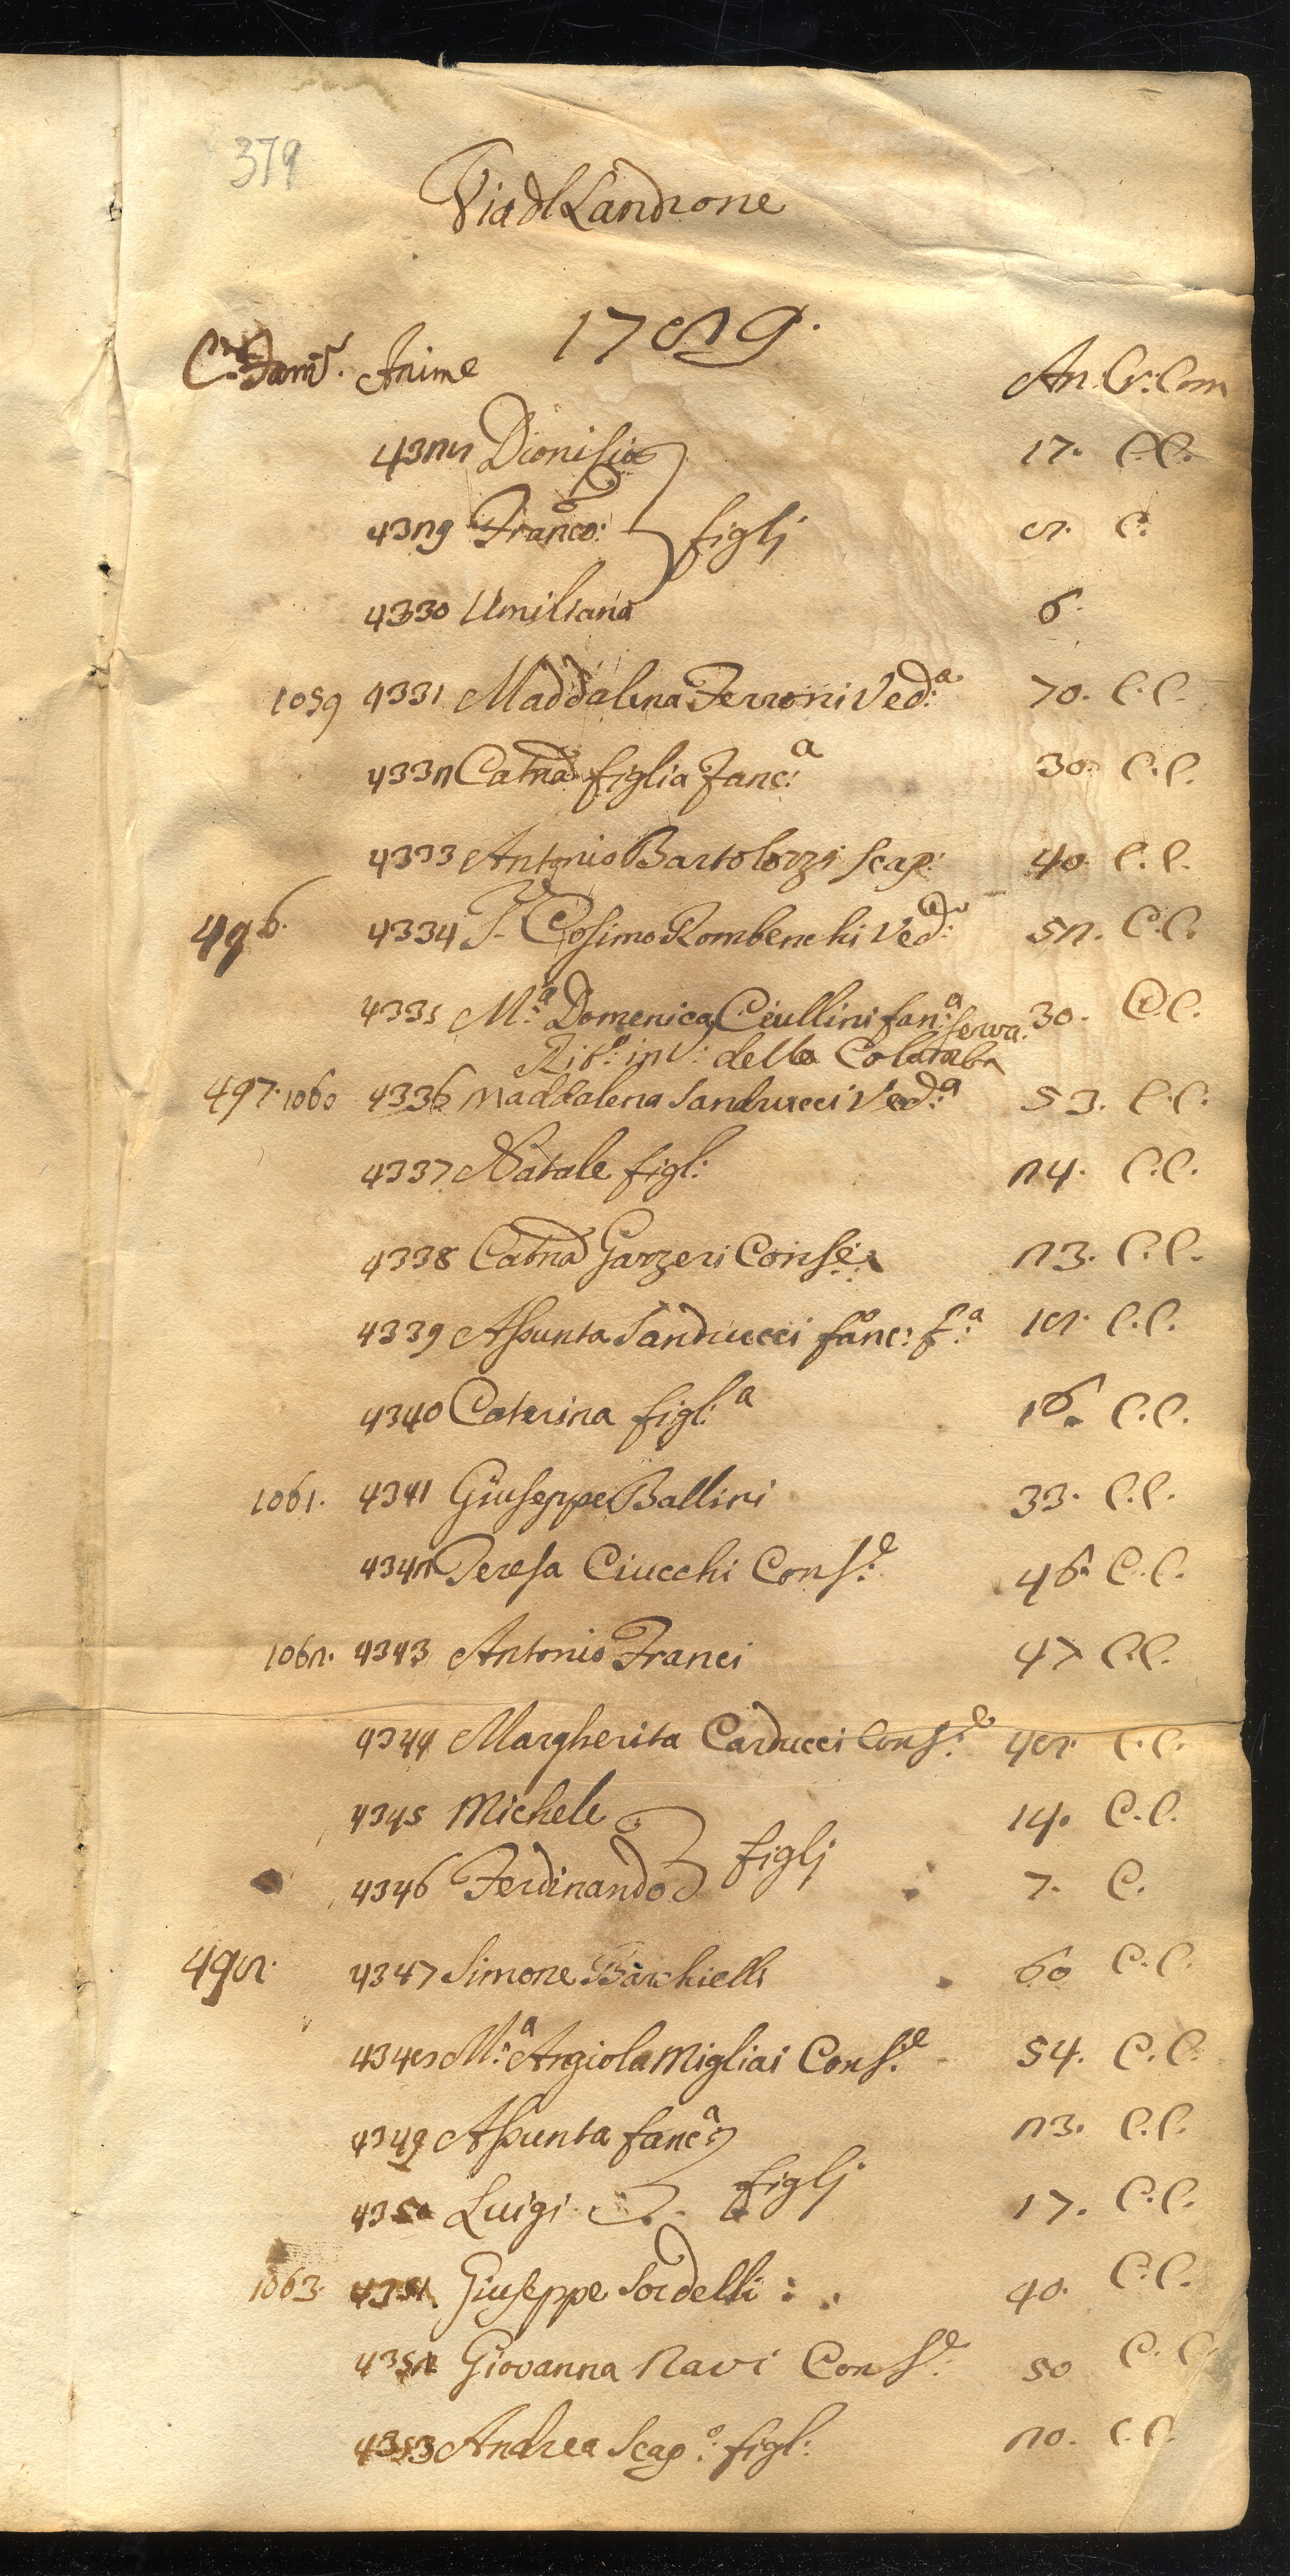 379
Via dl Landrone
1789.
C.e Fam.e Anime An. Cr: Com
4328 Dionisio 17. C.C.
4329 Franco: figlj 8. C.
4330 Umiliana 6.
1059 4331 Maddalena Ferroni Ved:a 70. C.C.
4332 Catna figlia Fanc:a 30. C.C.
4333 Antonio Bartolozzi Scap: 40. C.C.
496. 4334 F. Cosimo Rombenchi Ved:o 52. C.C.
4335 M:a Domenica Ciullini fan:a Serva. 30. C.C.
Rit:o in V: della Colomba
497. 1060 4336 Maddalena Sanducci Ved:a 53. C.C.
4337 Natale figl: 24. C.C.
4338 Catna Garzeri Conse: 23. C.C.
4339 Assunta Sanducci fanc: f:a 18. C.C.
4340 Caterina figl:a 16. C.C.
1061. 4341 Giuseppe Ballini 33. C.C.
4342 Teresa Ciucchi Cons:e 46. C.C.
1062. 4343 Antonio Franci 47 C.C.
4344 Margherita Carducci Cons:e 48. C.C.
4345 Michele 14. C.C.
4346 Ferdinando figlj 7. C.
498. 4347 Simone Barchielli 60 C.C.
4348 M:a Angiola Migliai Cons:e 54. C.C.
4349 Assunta fanc:a 23. C.C.
4350 Luigi figlj 17. C.C.
1063. 4351 Giuseppe Sordelli 40. C.C.
4352 Giovanna Navi Cons:e 50 C.C.
4353 Andrea Scap:o figl: 20. C.C.